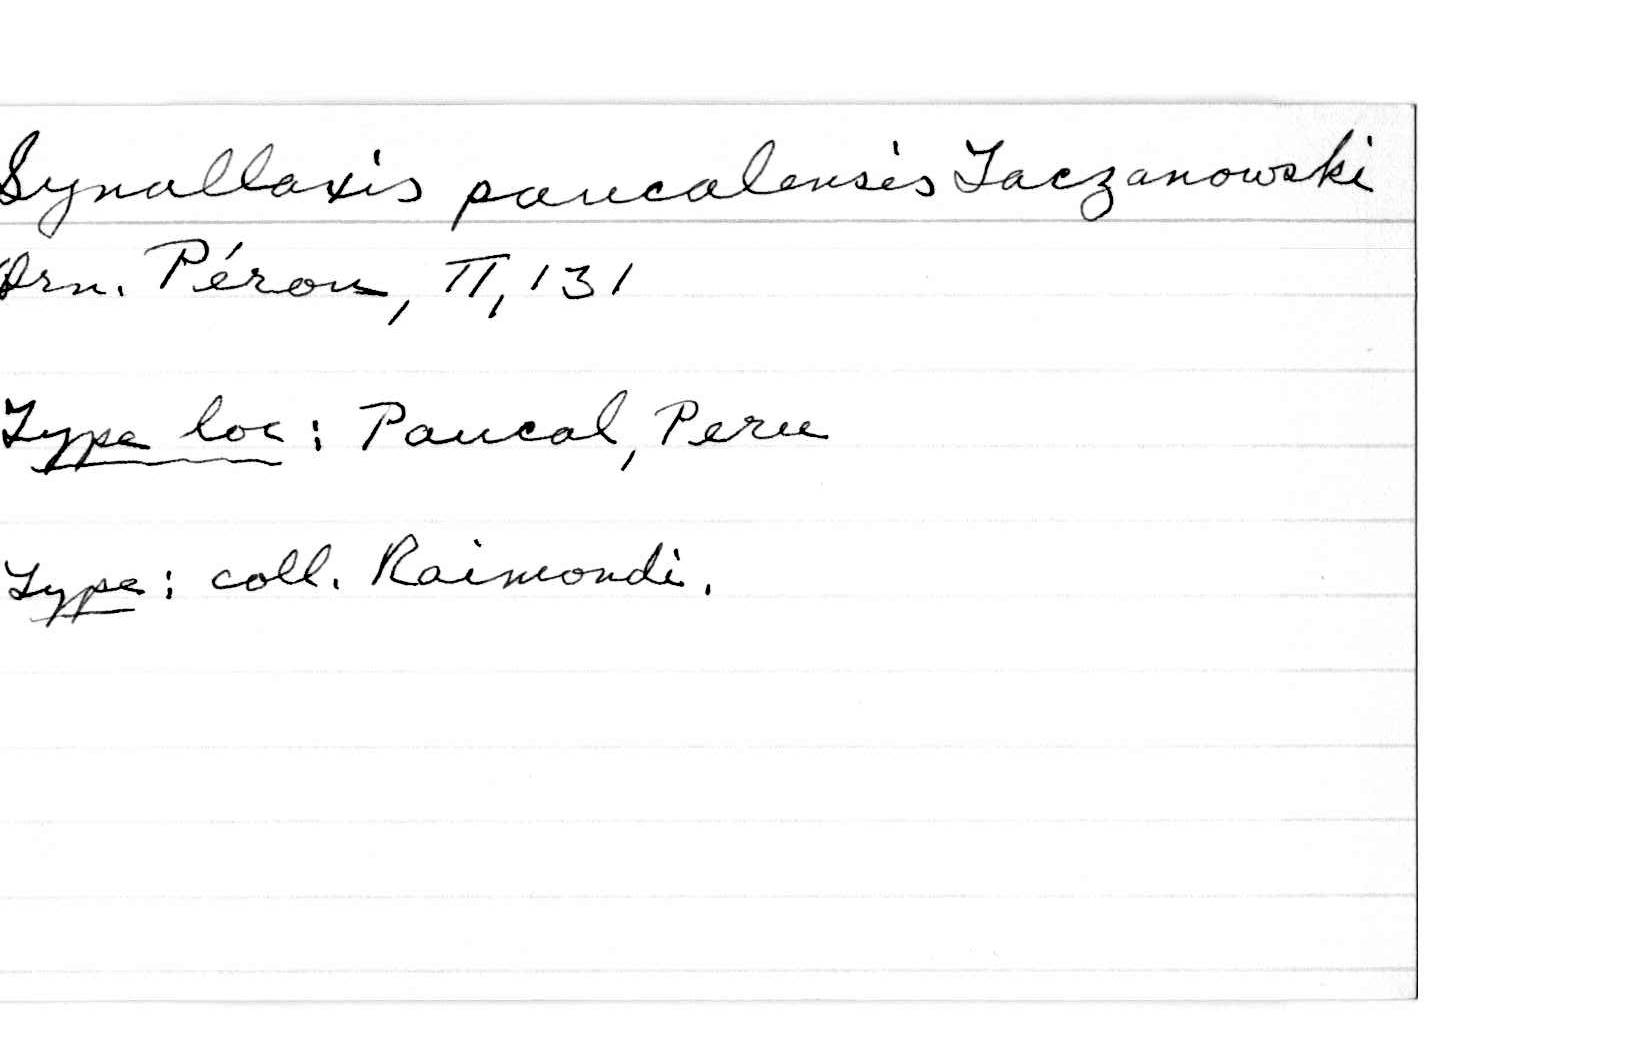 Synallaxis paucalensis Taczanowski
Orn. Pérou, II, 131
Type loc: Paucal, Peru
Type: coll. Raimondi.